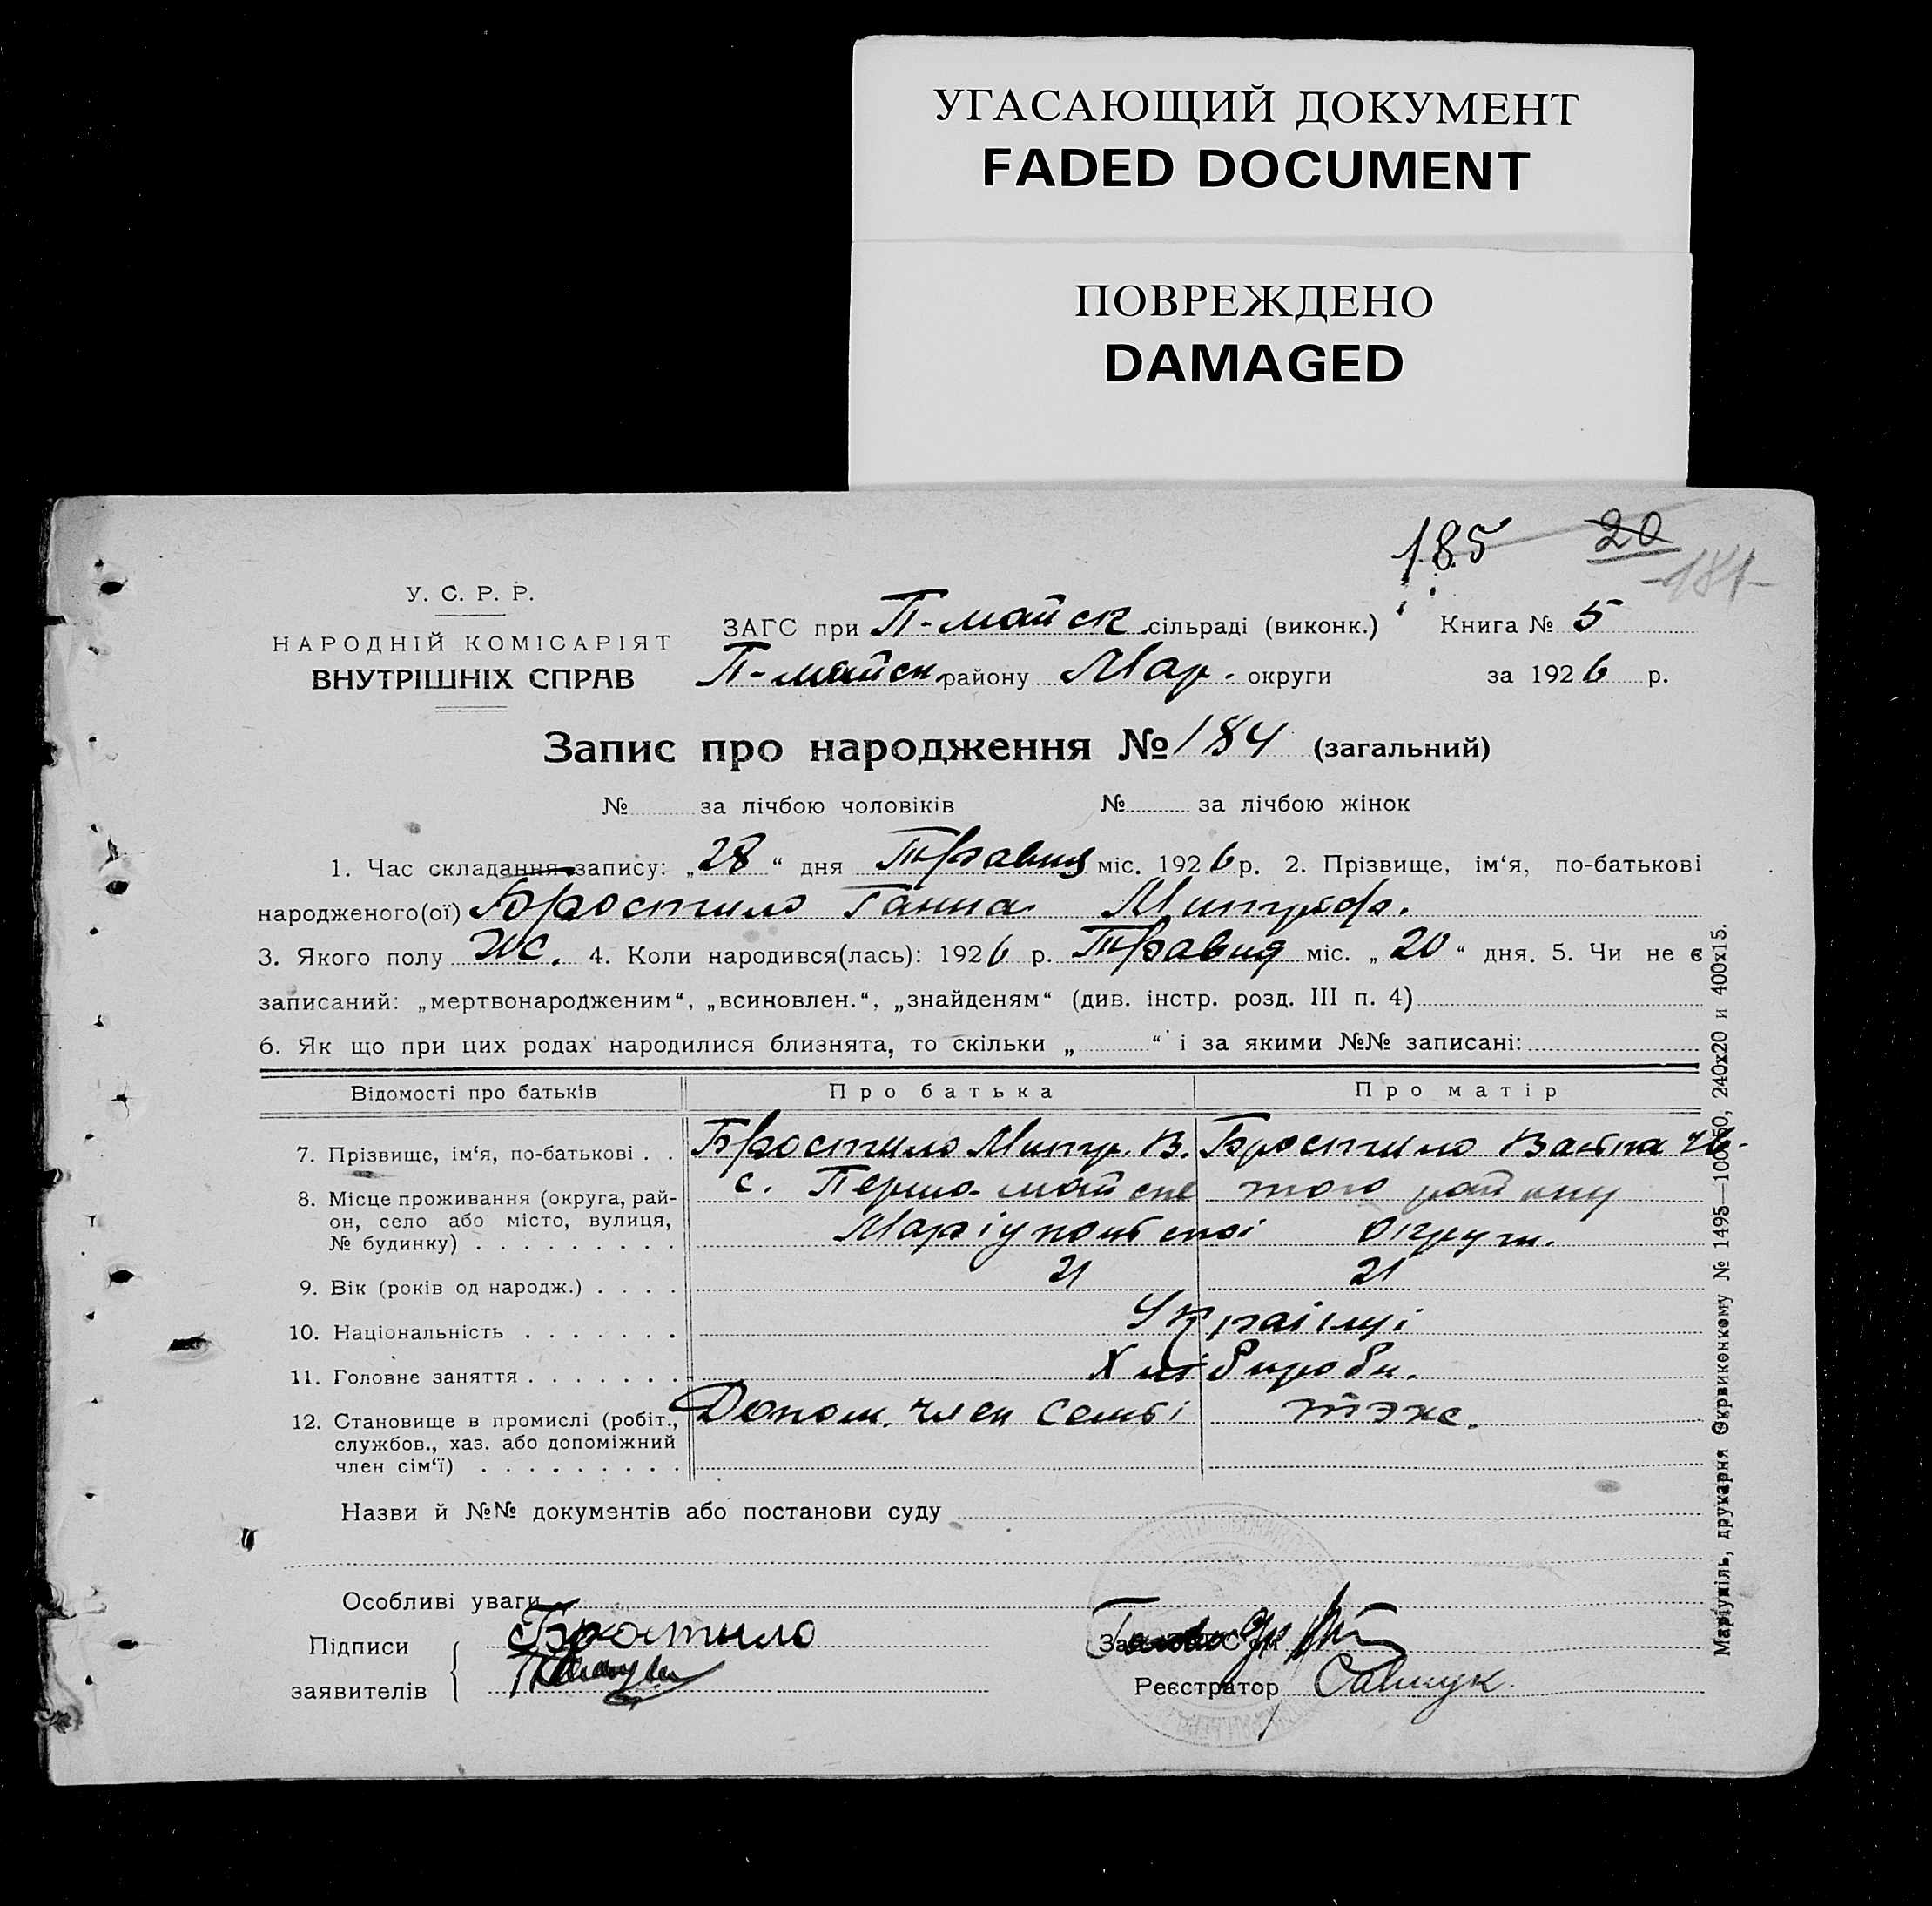 УГАСАЮЩИЙ ДОКУМЕНТ
FADED DOCUMENT
ПОВРЕЖДЕНО
DAMAGED
185 20
-181-
У. С. Р. Р.
НАРОДНІЙ КОМІСАРІЯТ
ВНУТРІШНІХ СПРАВ
ЗАГС при П-майск сільраді (виконк.) Книга № 5
П-майск району Мар. округи за 1926 р.
Запис про народження № 184 (загальний)
№ за лічбою чоловіків № за лічбою жінок
1. Час складання запису: „28“ дня Травня міс. 1926 р. 2. Прізвище, ім‘я, по-батькові
народженого(ої) Бростило Ганна Митроф.
3. Якого полу Ж. 4. Коли народився(лась): 1926 р. Травня міс. „20“ дня. 5. Чи не є
записаний: „мертвонародженим“, „всиновлен.“, „знайденям“ (див. інстр. розд. III п. 4)
6. Як що при цих родах народилися близнята, то скільки „ “ і за якими №№ записані:
Відомості про батьків Про батька Про матір
7. Прізвище, ім‘я, по-батькові . . Бростило Митр. В. Бростило
8. Місце проживання (округа, рай-
он, село або місто, вулиця,
№ будинку) . . . . . . . . .
с. Перво-майське того району
Маріупольскоі округи.
9. Вік (років од народж.) . . . . 21 21
10. Національність . . . . . . . Украінці
11. Головне заняття . . . . . . . Хліброби.
12. Становище в промислі (робіт.,
службов., хаз. або допоміжний
член сім‘ї) . . . . . . . . .
Допом. член семьі тэже.
Назви й №№ документів або постанови суду
Особливі уваги
Підписи
заявителів
Бростило
Реєстратор Савчук
Маріуміль, друкарня Окрвиконкому № 1495—100050, 240х20 и 400х15.